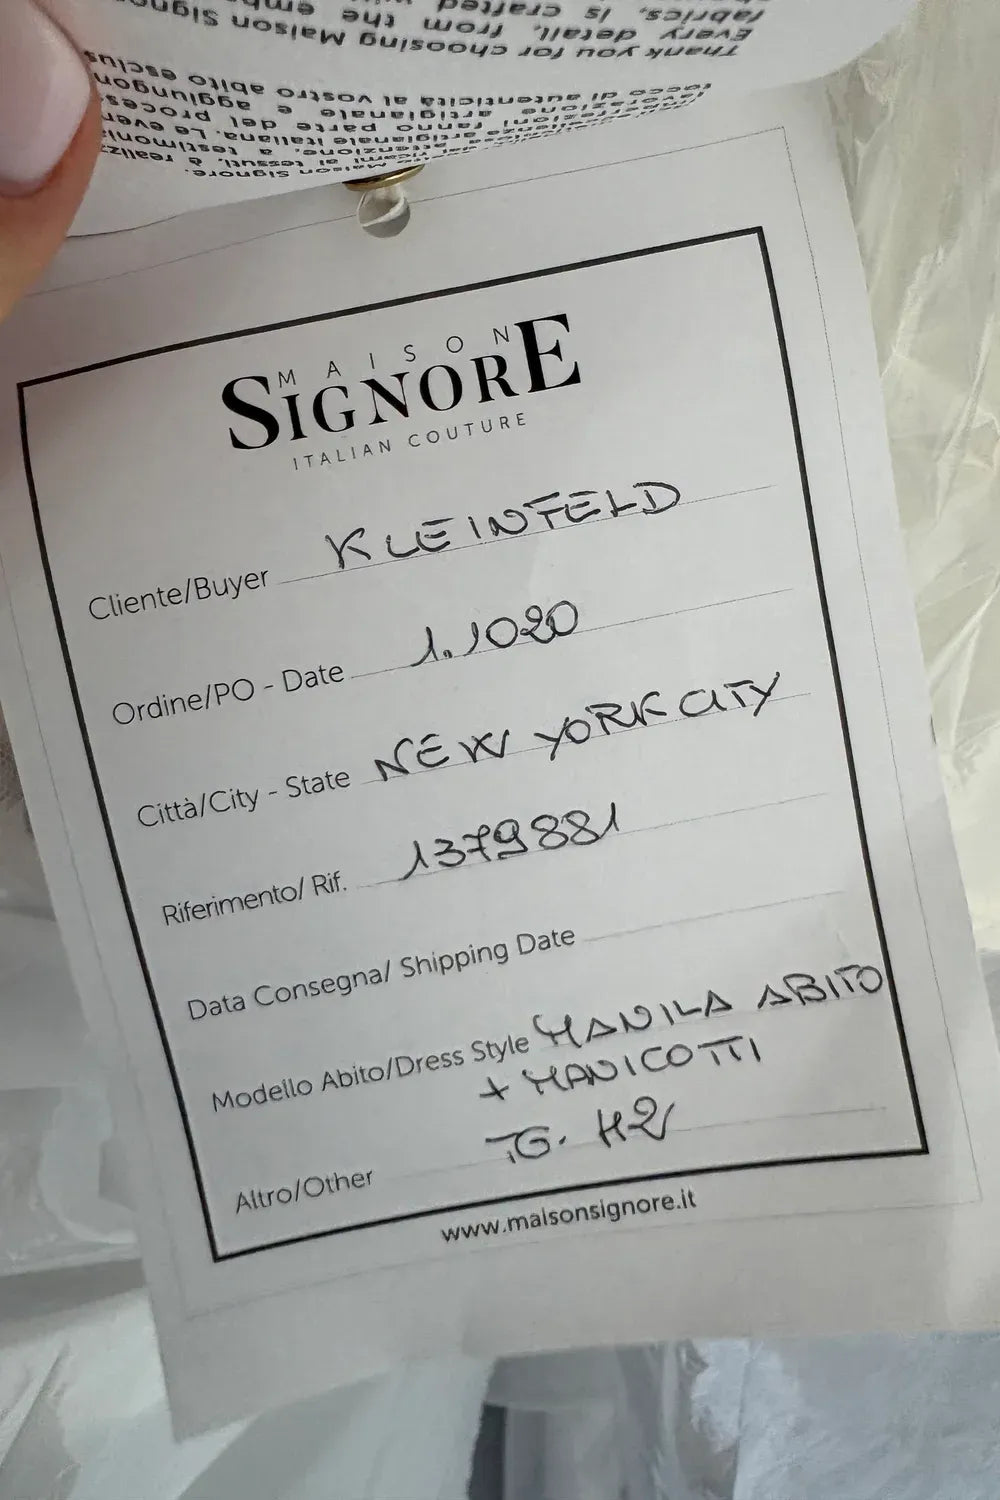 Thank you for choosing Maison Signo
Every detail, from the emb
fabrics, is crafted
Maison Signore.
ricami ai tessuti, è realizz
attenzione, a testimonia
artigianale italiana. Le even
fanno parte del proces
artigianale e aggiungon
tocco di autenticità al vostro abito esclus
MAISON
SIGNORE
ITALIAN COUTURE
Cliente/Buyer KLEINFELD
Ordine/PO - Date 1.1020
Città/City - State NEW YORK CITY
Riferimento/ Rif. 1379881
Data Consegna/ Shipping Date
Modello Abito/Dress Style MANILA ABITO
+ MANICOTTI
Altro/Other TG. 42
www.maisonsignore.it